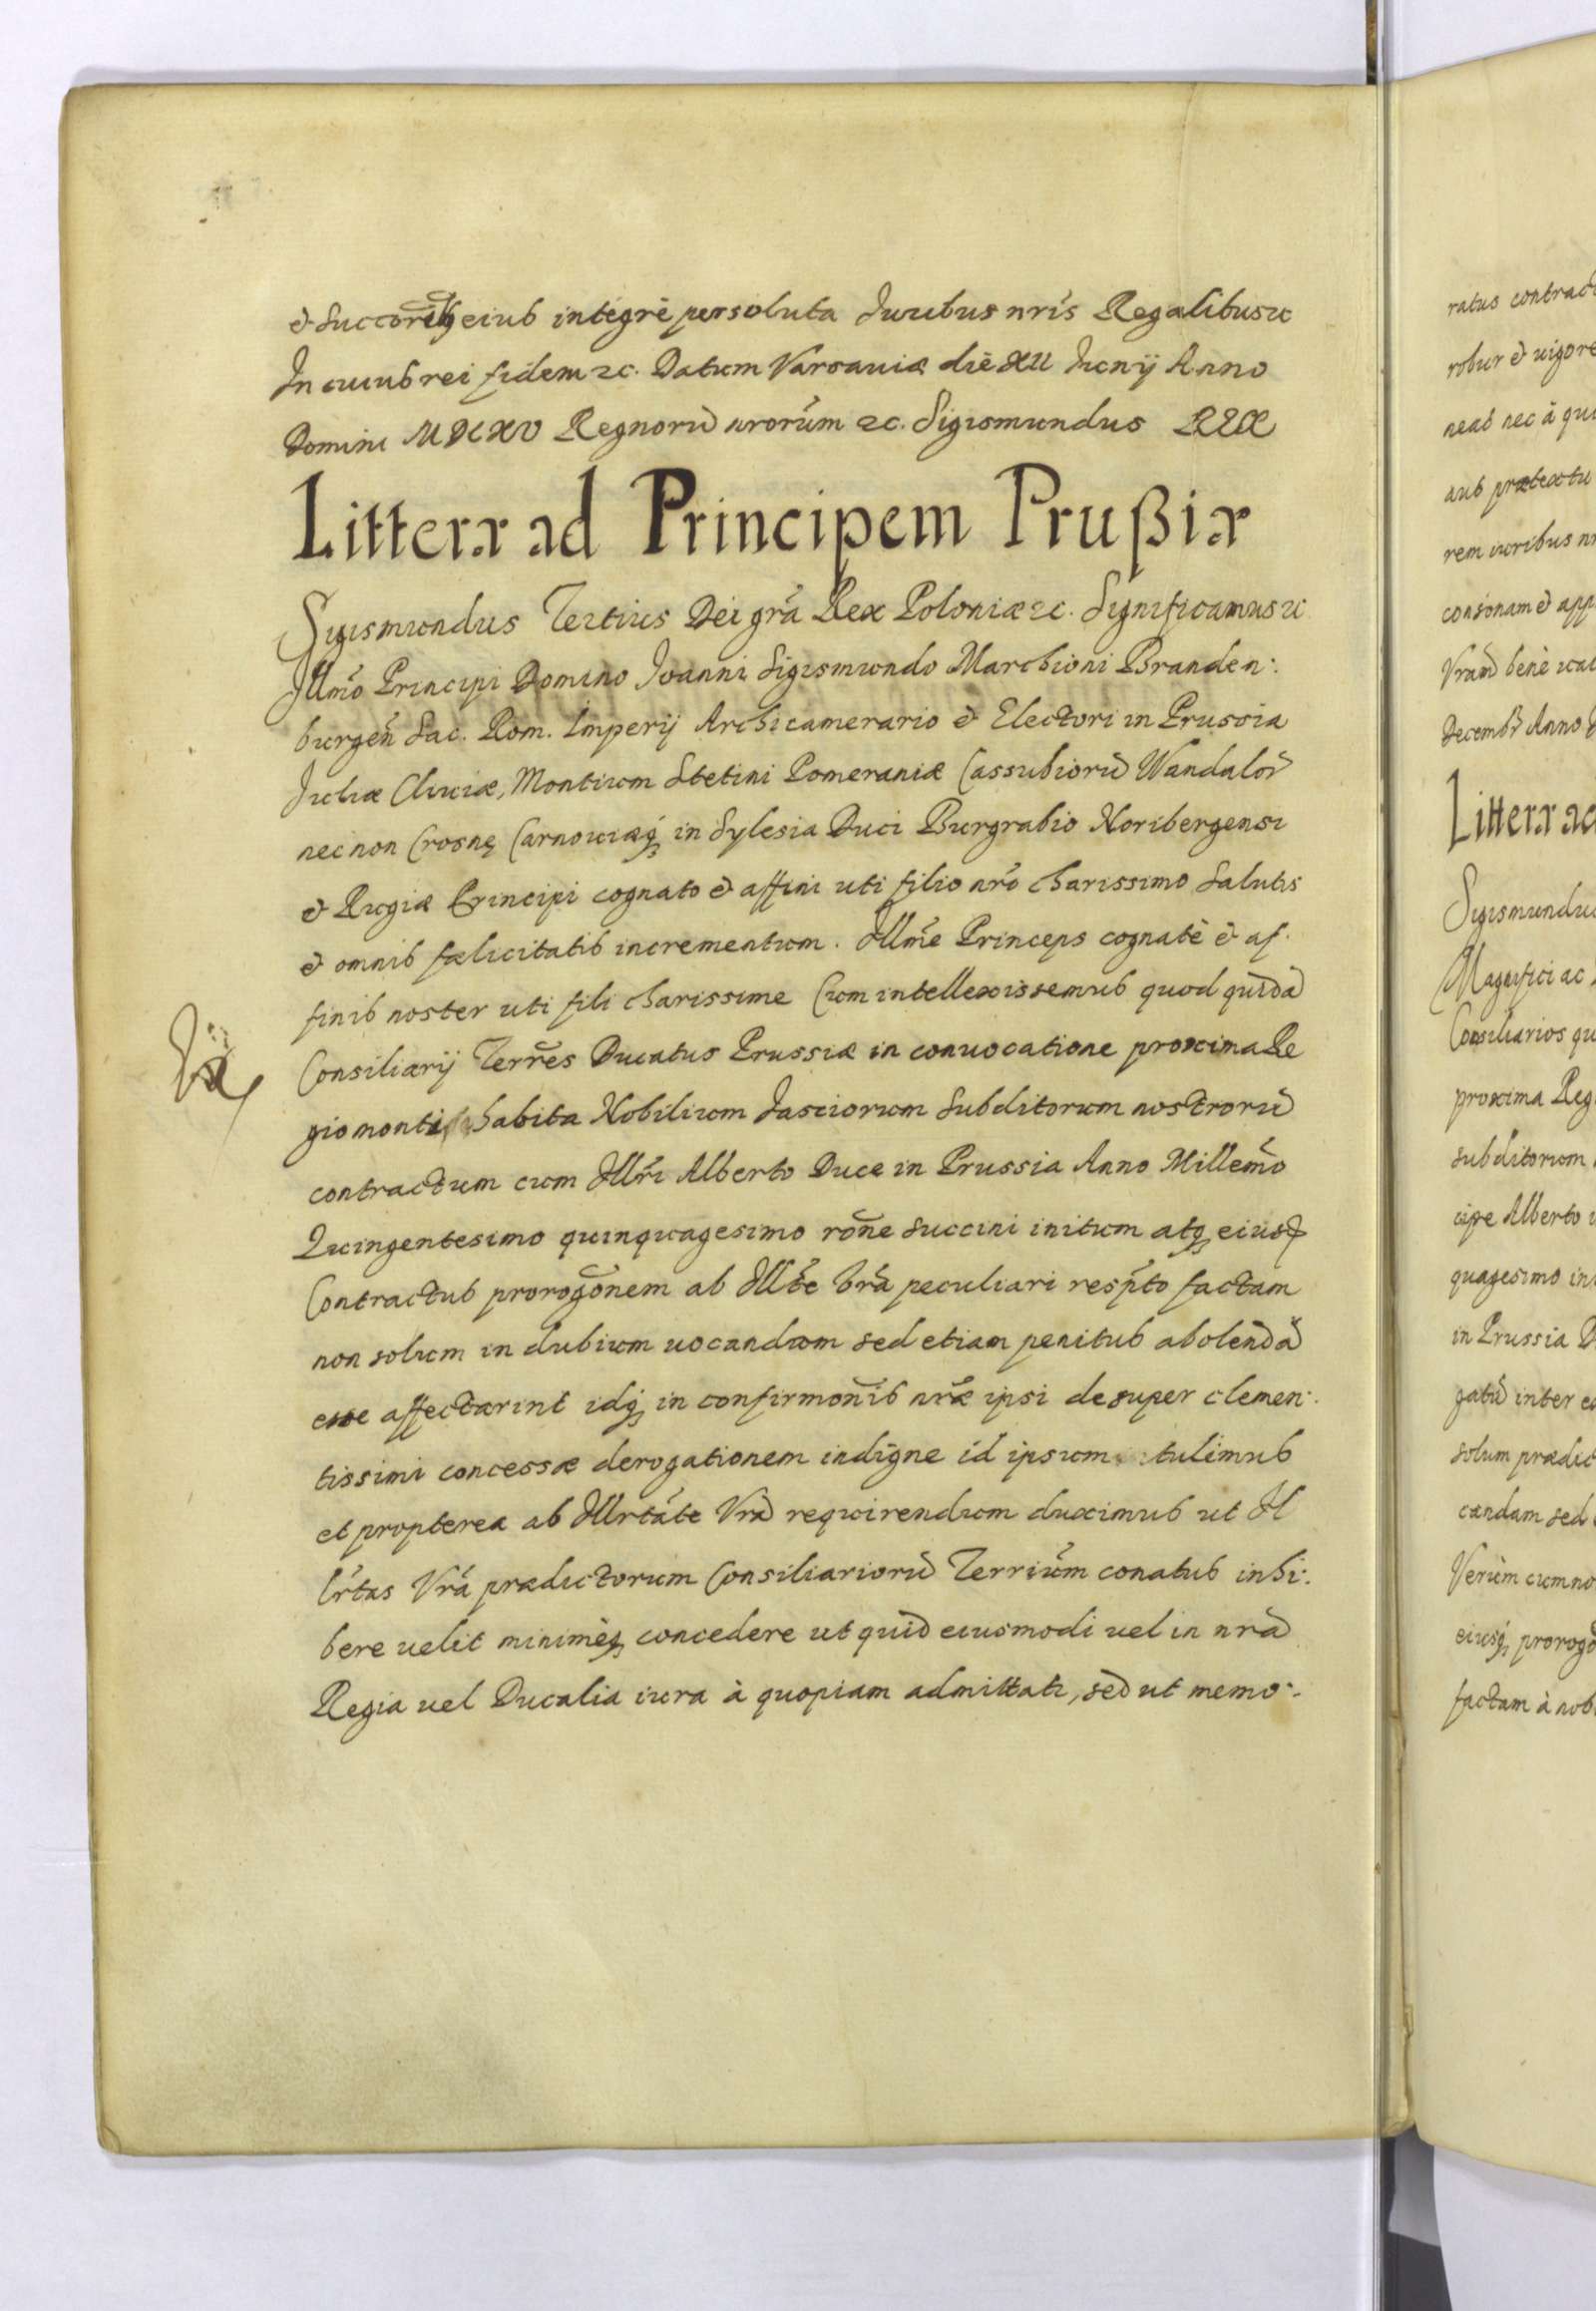 & Succorib9 eius integrè persoluta Juribus nris Regalibus 2c
In cuius rei fidem 2c. Datum Varsauiæ die XII Junij Anno
Domini MDCXV Regnorũ nrorum 2c. Sigismundus REX
Litteræ ad Principem Prußiæ
Sigismundus Tertius Dei gra Rex Poloniæ 2c. Significamus 2c
Illmo Principi Domino Joanni Sigismundo Marchioni Branden:
burgen Sac. Rom. Imperij Archicamerario & Electori in Prussia
Juliæ Cliuiæ, Montium Stetini Pomeraniæ Cassubiorũ Wandalor
nec non Crosnę Carnouiæq3 in Sylesia Duci Burgrabio Noribergensi
& Rugiæ Principi cognato & affini uti filio nro charissimo Salutis
& omnis fælicitatis incrementum. Illme Princeps cognatè & af.
finis noster uti fili charissime Cum intellexissemus quod quidã
Consiliarij Terres Ducatus Prussiæ in conuocatione proxima Re
giomonti habita Nobilium Jasciorum Subditorum nostrorũ
contractum cum Illri Alberto Duce in Prussia Anno Millemo
Quingentesimo quinquagesimo rone Succini initum atq3 eiusd
Contractus prorogonem ab Illte Vra peculiari respto factam
non solum in dubium uocandum sed etiam penitus abolendã
esse affectarint idq3 in confirmonis nræ ipsi desuper clemen:
tissimi concessæ derogationem indigne id ipsum tulimus
et propterea ab Illrtate Vrã requirendum duximus ut Il
lrtas Vra prædictorum Consiliariorũ Terrium conatus inhi:
bere uelit minimèq3 concedere ut quid eiusmodi uel in nrã
Regia uel Ducalia iura à quopiam admittatr, sed ut memo:
ratus contract
robur & uigore
neat nec à qu
aus prætextu
rem iuribus nr
consonam & app
Vrãm benè ual
Decembr Anno D
Litteræ ad
Sigismundus
Magnifici ac
Consiliarios qu
proxima Reg
subditorum
cipe Alberto
quagesimo in
in Prussia D
gatũ inter e
solum prædic
candam sed
Verùm cum no
eiusq3 prorogo
factam à nob